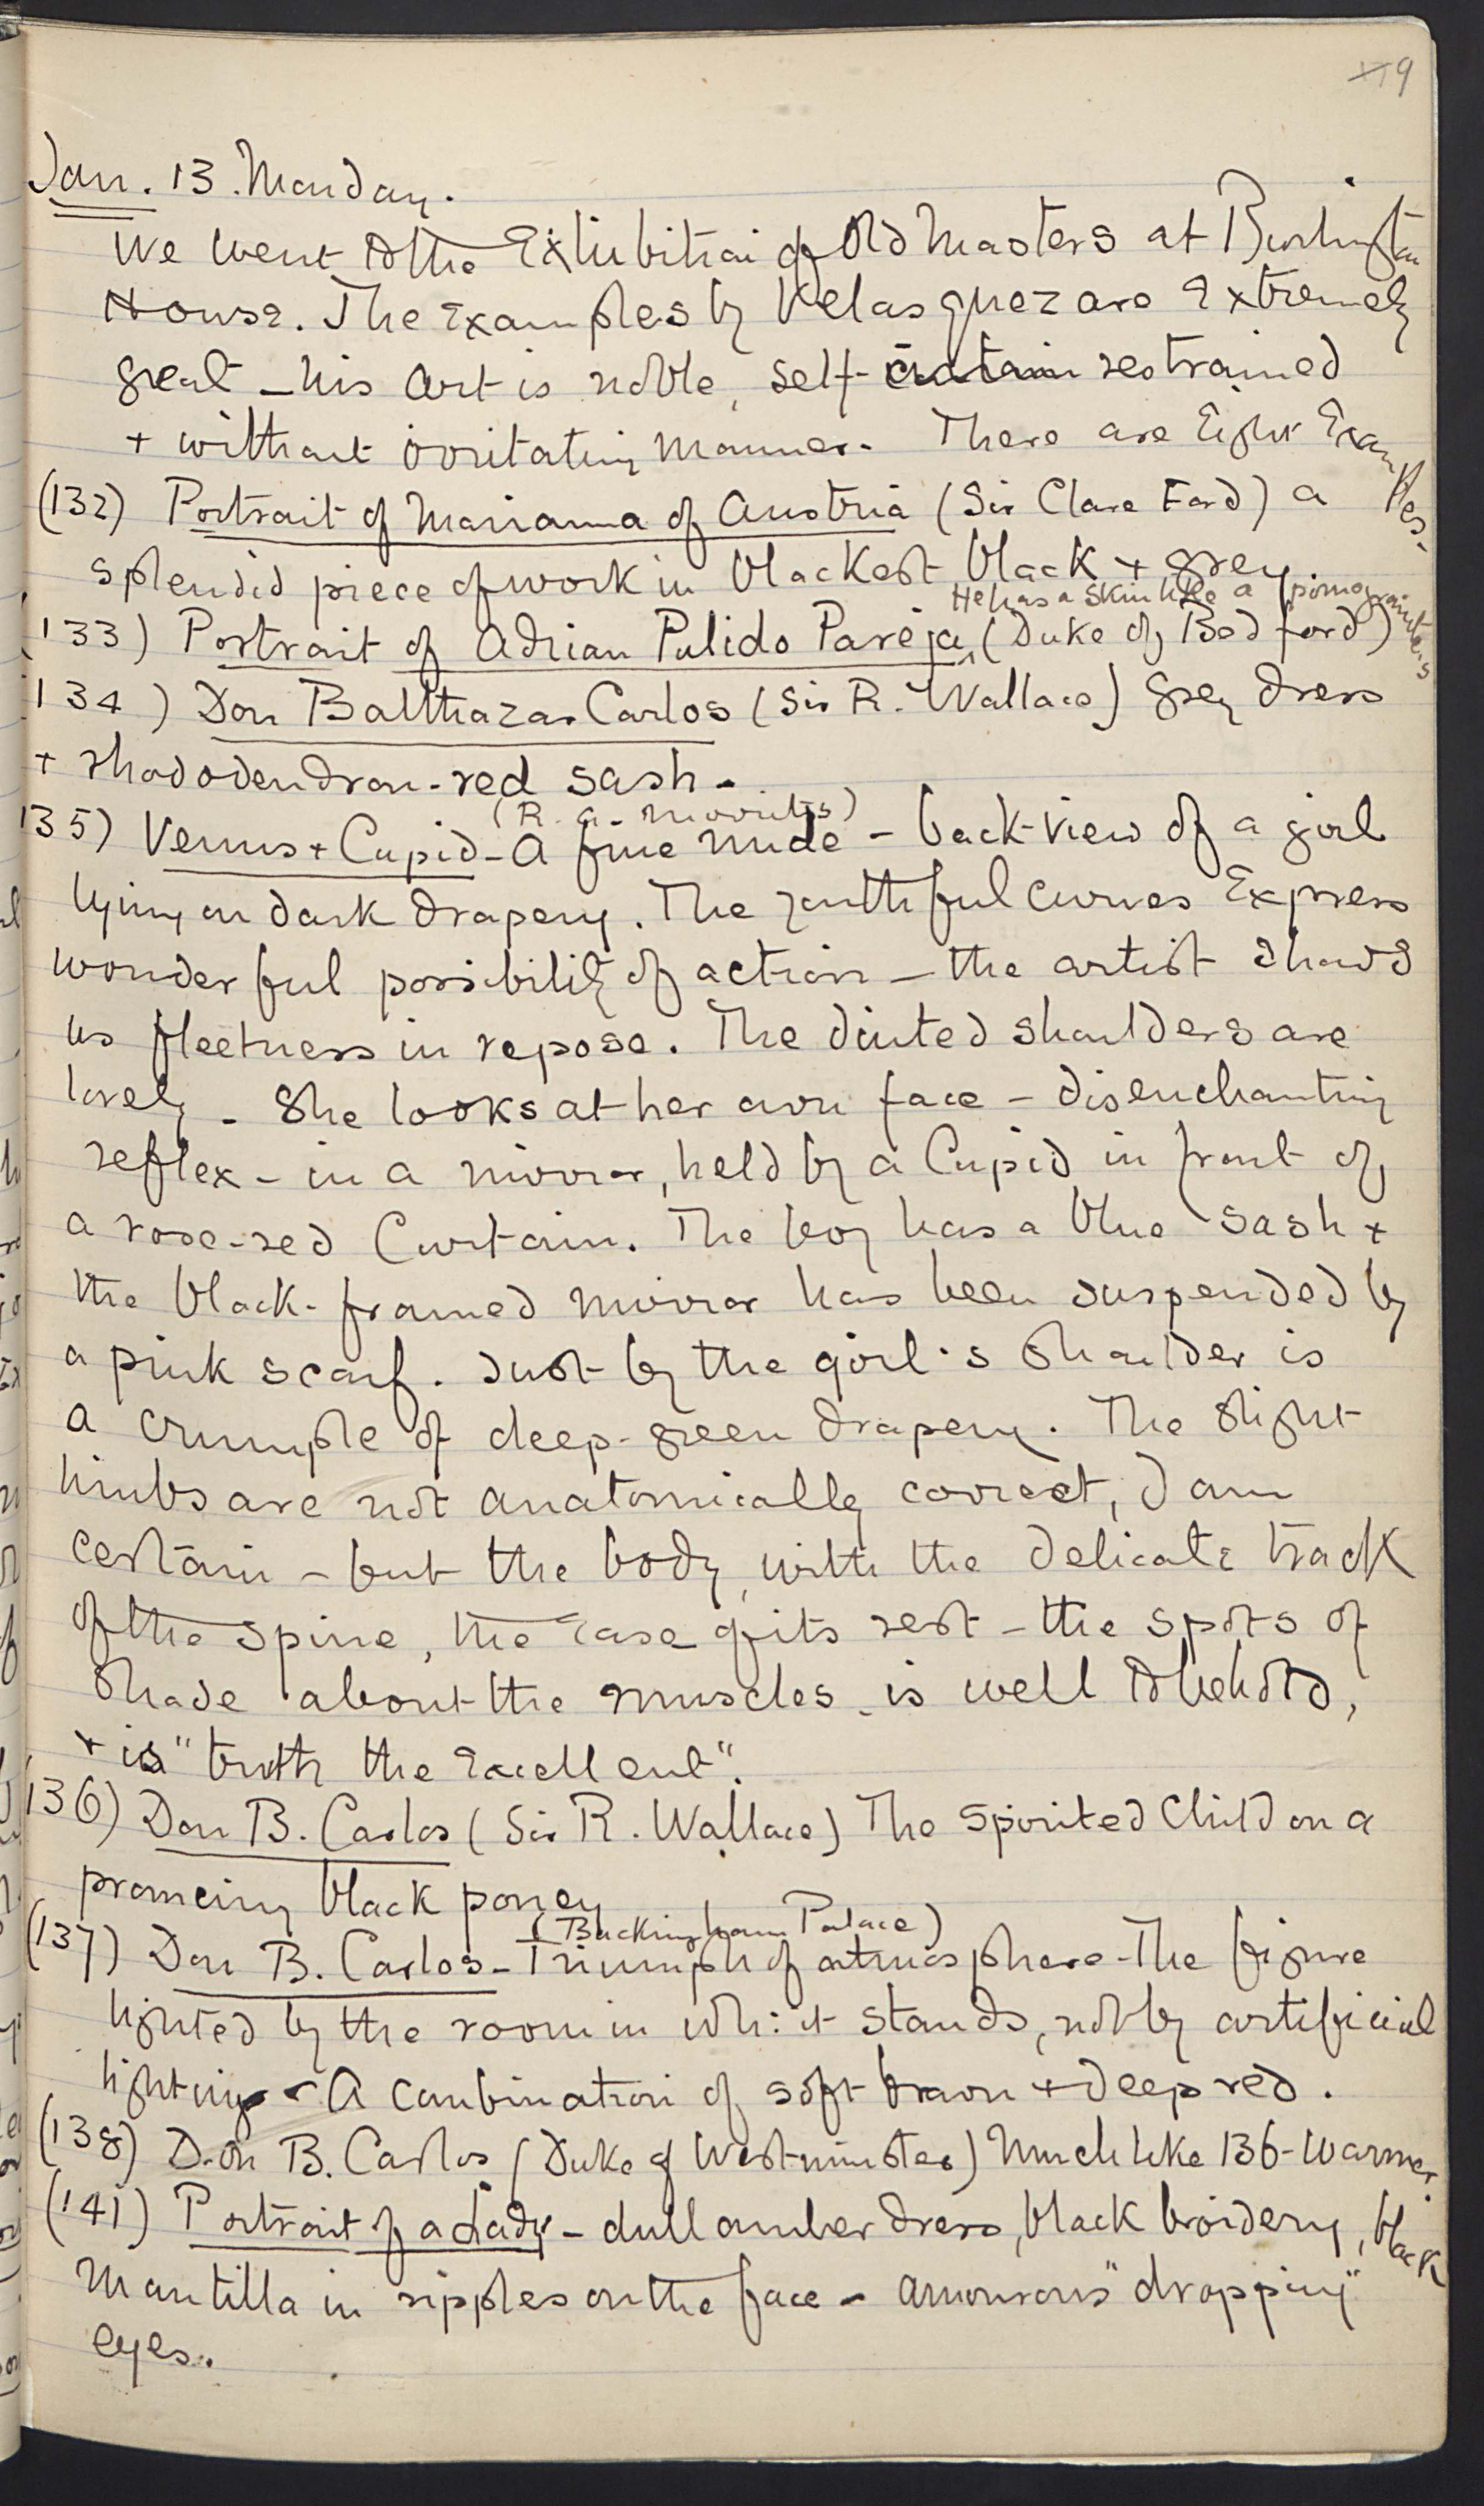 9
Jan. 13. Monday.
We went to the Exhibition of Old Masters at Burlington
House. The Examples by Velasquez are Extremely
great - his art is noble, self- restrained
+ without irritating manner. There are Eight Examples.
(132) Portrait of Marianna of Austria (Sir Clare Ford) a
splendid piece of work in blackest black + grey.
He has a skin like a pomegranate's
(133) Portrait of Adrian Pulido Pareja (Duke of Bedford)
134) Don Balthazar Carlos (Sir R. Wallace) grey dress
+ rhododendron-red sash.
(R. A. Morritts)
135) Venus + Cupid - A fine nude - back-view of a girl
lying on dark drapery. The youthful curves Express
wonderful possibility of action - the artist shows
us fleetness in repose. The dinted shoulders are
lovely - She looks at her own face - disenchanting
reflex - in a mirror, held by a Cupid in front of
a rose-red Curtain. The boy has a blue sash +
the black-framed mirror has been suspended by
a pink scarf. Just by the girl's shoulder is
a crumple of deep-green drapery. The slight
limbs are not anatomically correct, I am
certain - but the body, with the delicate track
of the spine, the ease of its rest - the spots of
shade about the muscles - is well to behold,
+ is "truth the Excellent".
136) Don B. Carlos (Sir R. Wallace) The spirited Child on a
prancing black poney
(Buckingham Palace)
(137) Don B. Carlos - Triumph of atmosphere - The figure
lighted by the room in wh: it stands, not by artificial
lighting - A combination of soft brown + deep red.
(138) Don B. Carlos (Duke of Westminster) Much like 136 - Warmer.
(141) Portrait of a Lady - dull amber dress, black broidery, black
Mantilla in ripples on the face - amourous "dropping"
eyes.